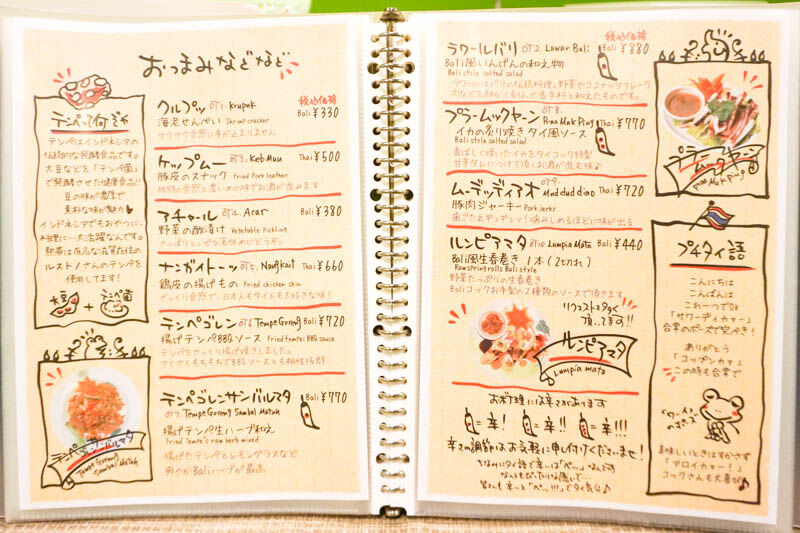 おつまみなどなど
テンペって何ぞや
テンペはインドネシアの
伝統的な発酵食品です。
大豆などを「テンペ菌」
で発酵させた健康食品!!
豆の味が濃厚で
素朴な味が魅力
インドネシアでもおやつに、
料理に…大活躍なんです。
熱帯は有名な滋賀在住の
ルストノさんのテンペを
使用してます!
大豆 + テンペ菌
テンペゴレン
サンバルマタ
Tempe Goreng
Sambal Matah
税込価格
クルプッ OT1. Krupuk Bali ¥330
海老せんべい Shrimp cracker
サクサク食感に手が止まりません
ケップムー OT3. Keb Muu Thai ¥500
豚皮のスナック Fried Pork leather
独特の食感と濃いめの味でお酒が進みます
アチャール OT4. Acar Bali ¥380
野菜の酢漬け Vegetable picklint
さっぱりとしぜひ箸休めにどうぞ。
ナンガイトーッ OT5. Nangkait Thai ¥660
鶏皮の揚げもの Fried chicken skin
ざっくり食感で、日本人もタイ人も大好きな味!
テンペゴレン OT6 Tempe Goreng Bali ¥720
揚げテンペBBQソース Fried tempei BBQ sauce
テンペをさっくり揚げ焼きしました。
さくさくもちもちでBBQソースとも相性抜群
テンペゴレンサンバルマタ Bali ¥770
OT7. Tempe Goreng Sambal Matah
揚げテンペ生ハーブ和え
Fried Tempe's raw herb mixed
揚げたテンペとレモングラスなど
爽やかBaliハーブが最高
税込価格
ラワールバリ OT2. Lawar Bali Bali ¥880
Bali風いんげんの和え物
Bali style salted salad
ラワールはバリの伝統料理。野菜やココナッツフレーク
プラームックヤーン OT8. Praa Muk Ping Thai ¥770
イカの炙り焼き タイ風ソース
Bali style salted salad
香ばしく焼いたイカをタイコック特製
甘辛タレにつけて頂くお酒が進む味♪
ムーデッディアオ OT9. Mud dud diao Thai ¥720
豚肉ジャーキー Pork Jerky
歯ごたえギュギュッ!噛みしめるほどに味が出る
ルンピアマタ OT10 Lumpia Mata Bali ¥440
Bali風生春巻き 1本(2切れ)
Raw spring rolls Bali style
野菜たっぷりの生春巻き
Baliコックお手製の2種類のソースで頂きます
リクエスト多く
頂いてます!!
ルンピアマタ
Lumpia mata
お料理には辛さがあります
=辛! =辛!! =辛!!!
辛さの調節はお気軽に申し付けくださいませ!
ちなみにタイ語で辛いは「ペッ」なんですが
なんともぴったりな感じで…
皆さん辛いと「ペッ!!!」でタイ気分♪
プラー
ムックヤーン
Praa Muk Ping
プチタイ語
こんにちは
こんばんは
これ一つでOK
「サワーディカァー」
合掌のポーズで完ぺき!
ありがとう
「コップンカァ」
この時も合掌で
「ワーイ」
のポーズ
美味しいときはすかさず
「アロイカァー!」
コックさんも大喜び♪